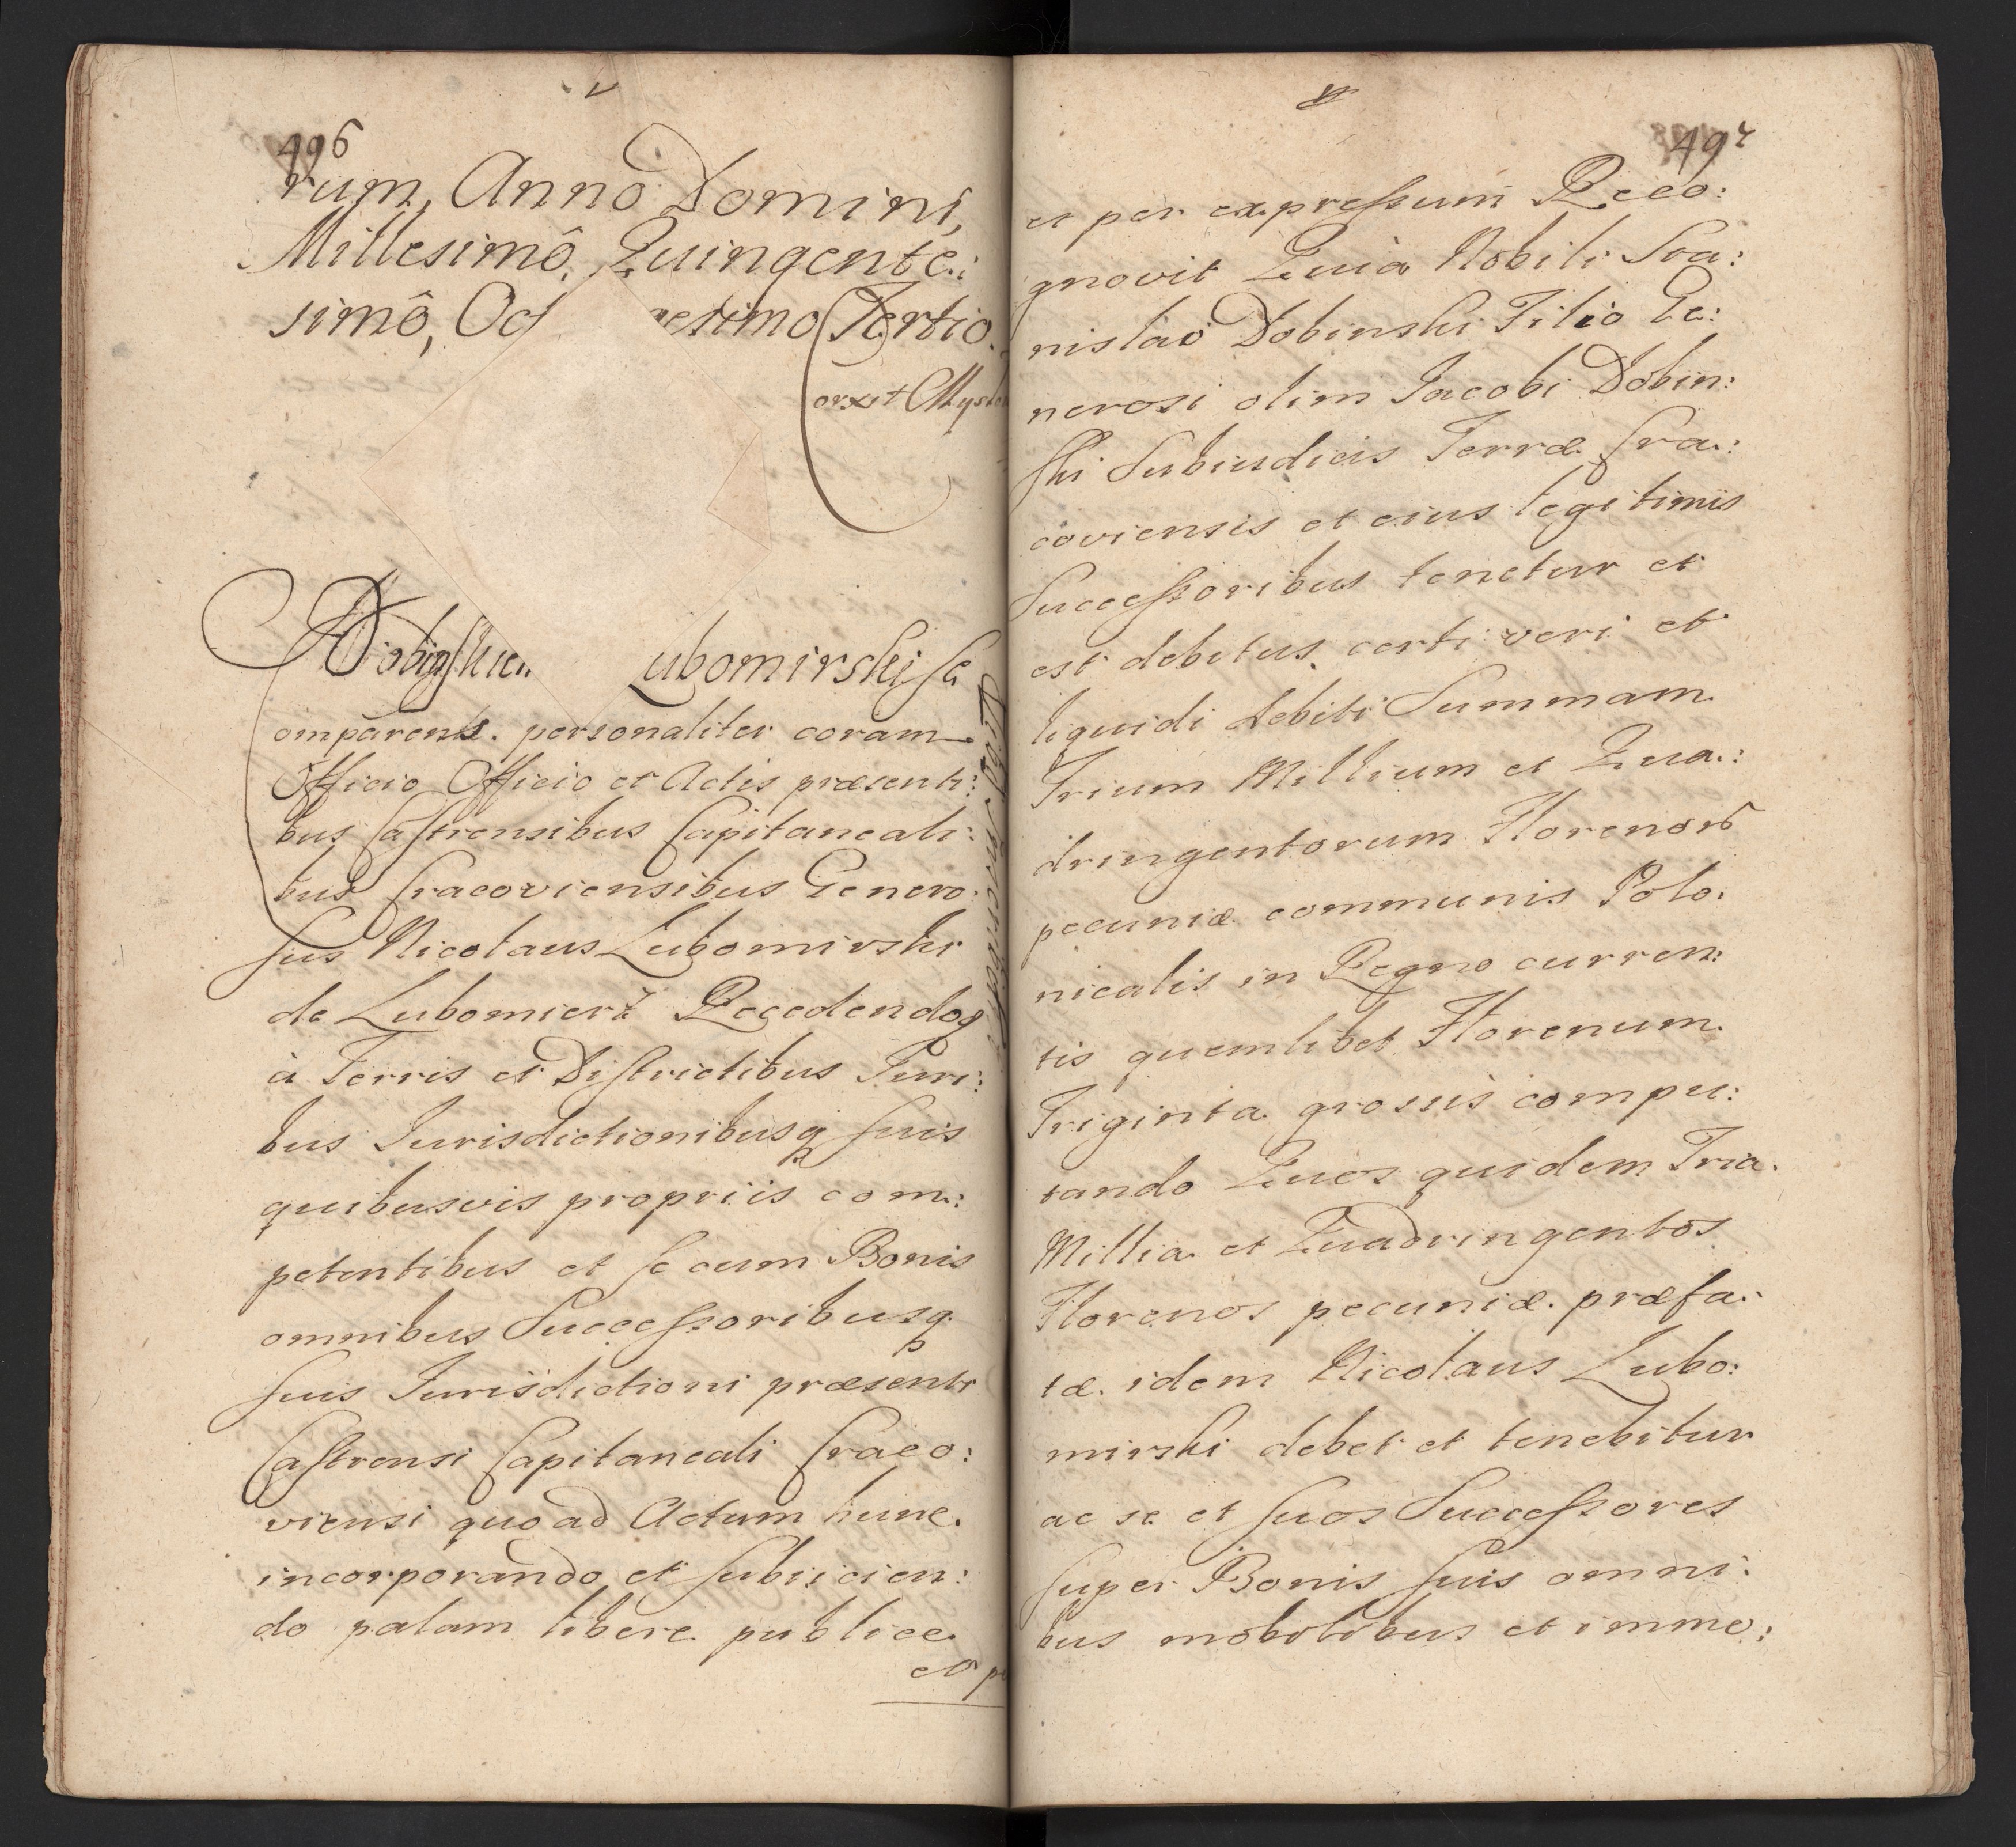 496
rum, Anno Domini,
Millesimô, Quingente:
simô, Oct gesimo Tertio.
orxit
Dobinskien Lubomirski se
omparens personaliter coram
Officio Officio et Actis præsenti:
bus Castrensibus Capitaneali:
bus Cracoviensibus Genero:
sus Nicolaus Lubomirski
de Lubomierz Recedendoq
à Terris et Districtibus Juri:
bus Jurisdictionibusq suis
quibusvis propriis com:
petentibus et se cum Bonis
omnibus Successoribusq
suis Jurisdictioni præsenti
Castrensi Capitaneali Craco:
viensi quoad Actum hunc
incorporando et subiicien:
do palam libere publice
et p
497
et per expressum Reco:
gnovit Quia Nobili Sta:
nislao Dobinski Filio Ge:
nerosi olim Jacobi Dobin:
ski Subiudicis Terræ Cra:
coviensis et eius legitimis
Successoribus tenetur et
est debitus certi veri et
liquidi debiti Summam
Trium Millium et Qua:
dringentorum Florenor
pecuniæ communis Polo:
nicalis in Regno curren:
tis quemlibet Florenum
Triginta grossis compu:
tando Quos quidem Tria
Millia et Quadringentos
Florenos pecuniæ præfa:
tæ idem Nicolaus Lubo:
mirski debet et tenebitur
ac se et suos Successores
super Bonis suis omni:
bus mobilibus et immo: